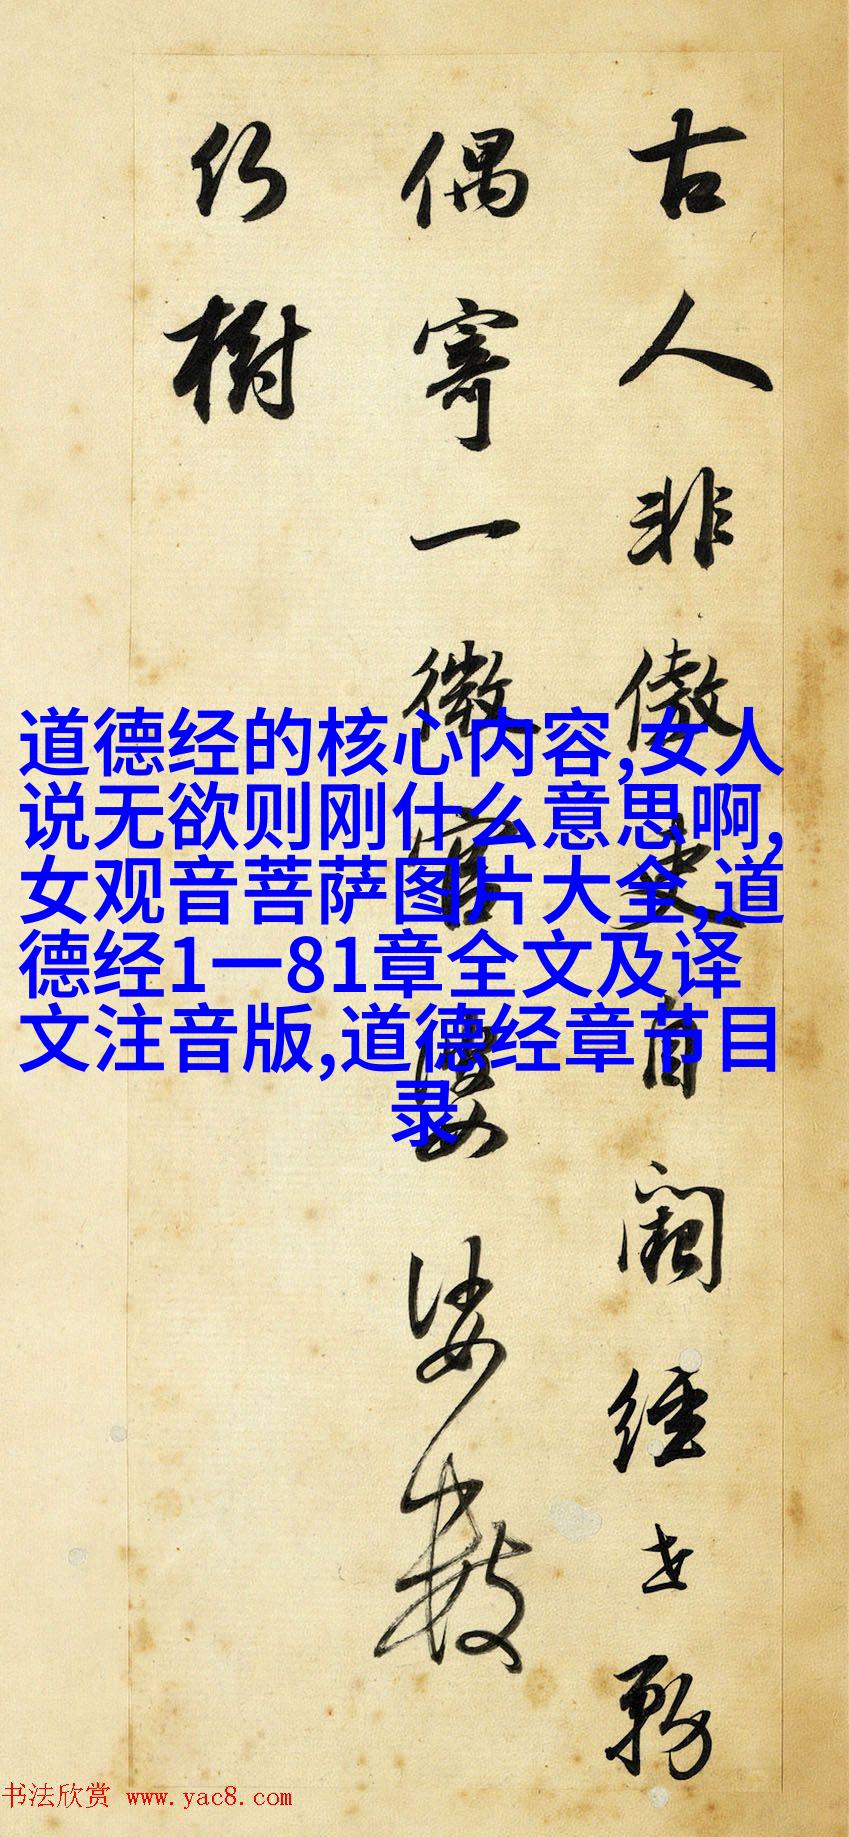 古人非傲吏自闕經世務
偶寄一微官婆娑數
樹
道德经的核心内容,女人
说无欲则刚什么意思啊,
女观音菩萨图片大全,道
德经1一81章全文及译
文注音版,道德经章节目
录
书法欣赏 www.yac8.com